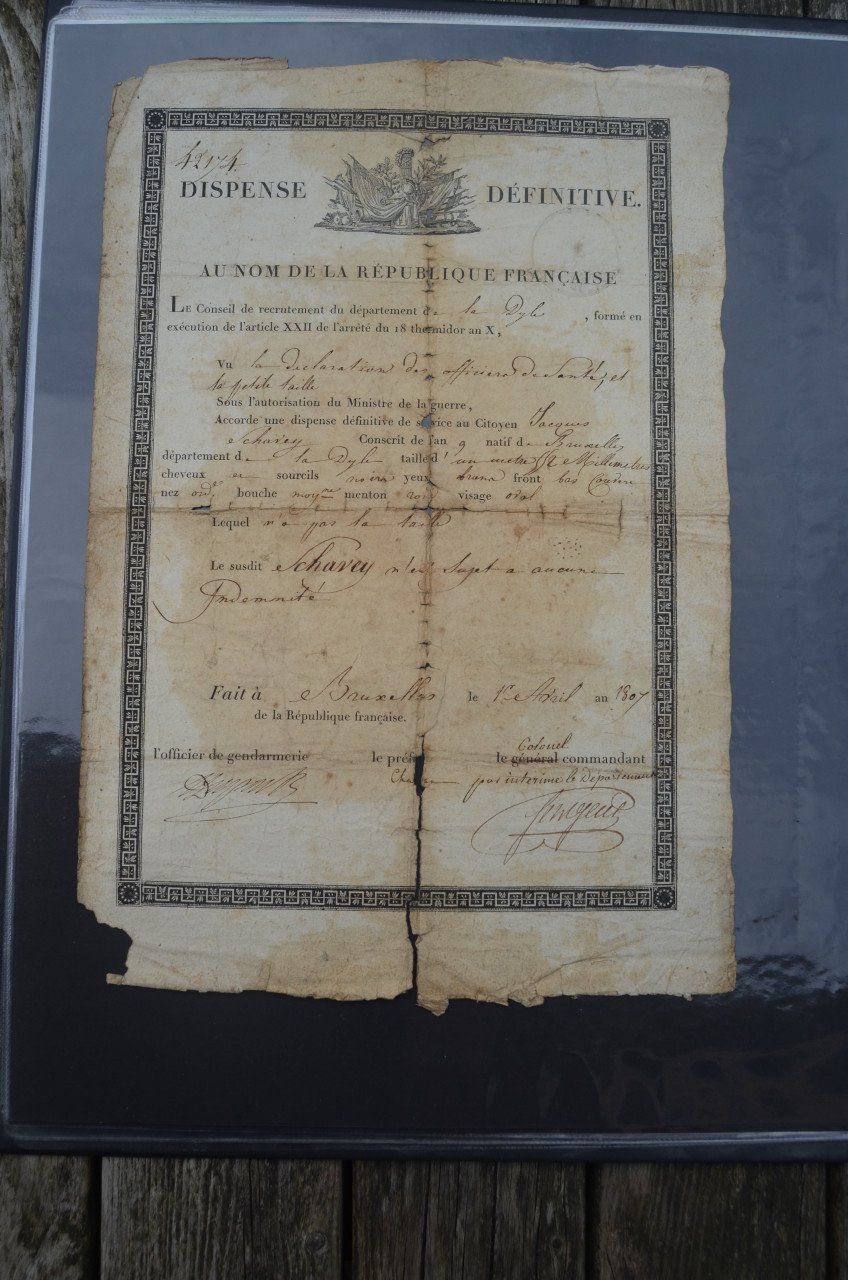 42174
DISPENSE DÉFINITIVE.
AU NOM DE LA RÉPUBLIQUE FRANÇAISE
LE Conseil de recrutement du département de la Dyle, formé en
exécution de l'article XXII de l'arrêté du 18 thermidor an X,
Vu la declaration des officiers de Santé, et
la petite taille
Sous l'autorisation du Ministre de la guerre,
Accorde une dispense définitive de service au Citoyen Jacques
Schavey Conscrit de l'an 9 natif de Bruxelles
département de la Dyle taille d'un metre Millimetres
cheveux et sourcils noirs yeux bruns front bas
nez ord.e bouche moy.ne menton rond visage oval
Lequel n'a pas la taille
Le susdit Schavey n'est Sujet a aucune
Indemnité
Fait à Bruxelles le 1er Avril an 1807
de la République française.
l'officier de gendarmerie le préfet le général Colonel commandant
par interime le Departement